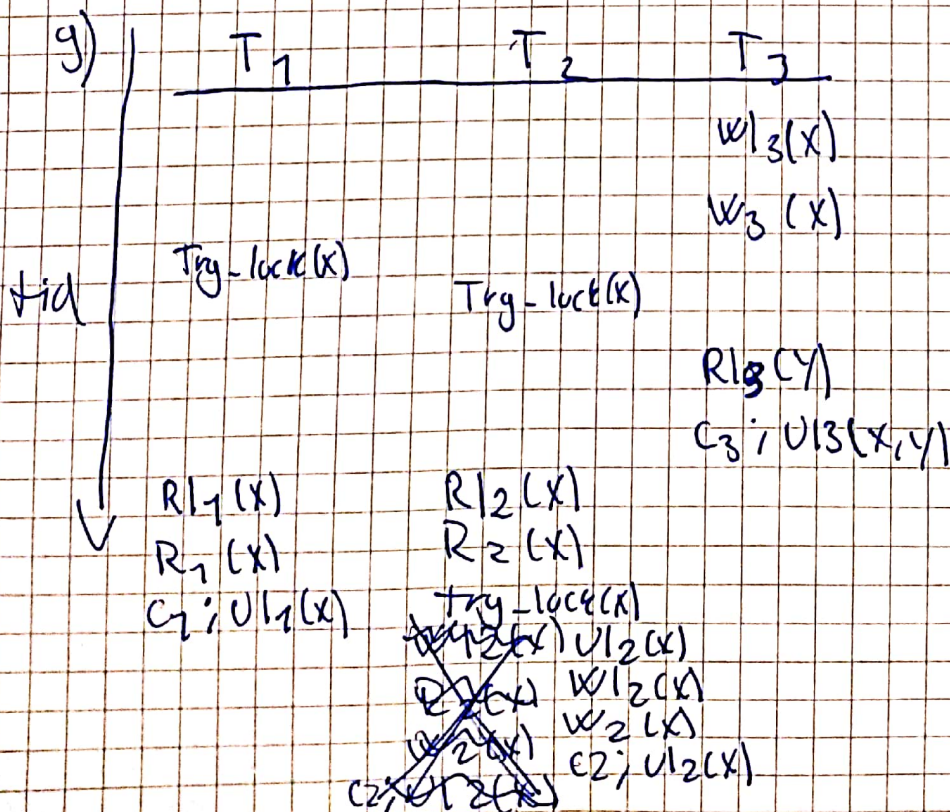 g) T1 T2 T3
Wl3(X)
W3 (X)
Try-lock(X)
tid Try-lock(X)
Rl3(Y)
C3; Ul3(X,Y)
Rl1(X) Rl2(X)
R1(X) R2(X)
C1; Ul1(X) try-lock(X)
Ul2(X)
Wl2(X)
W2(X) W2(X)
C2; Ul2(X) C2; Ul2(X)